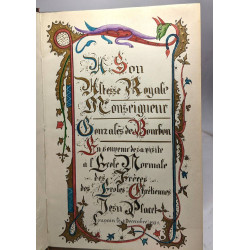 A Son
Altesse Royale
Monseigneur
Gonzalés de Bourbon
En souvenir de sa visite
à l'Ecole Normale
des Frères
des Ecoles Chrétiennes
Jesu Placet